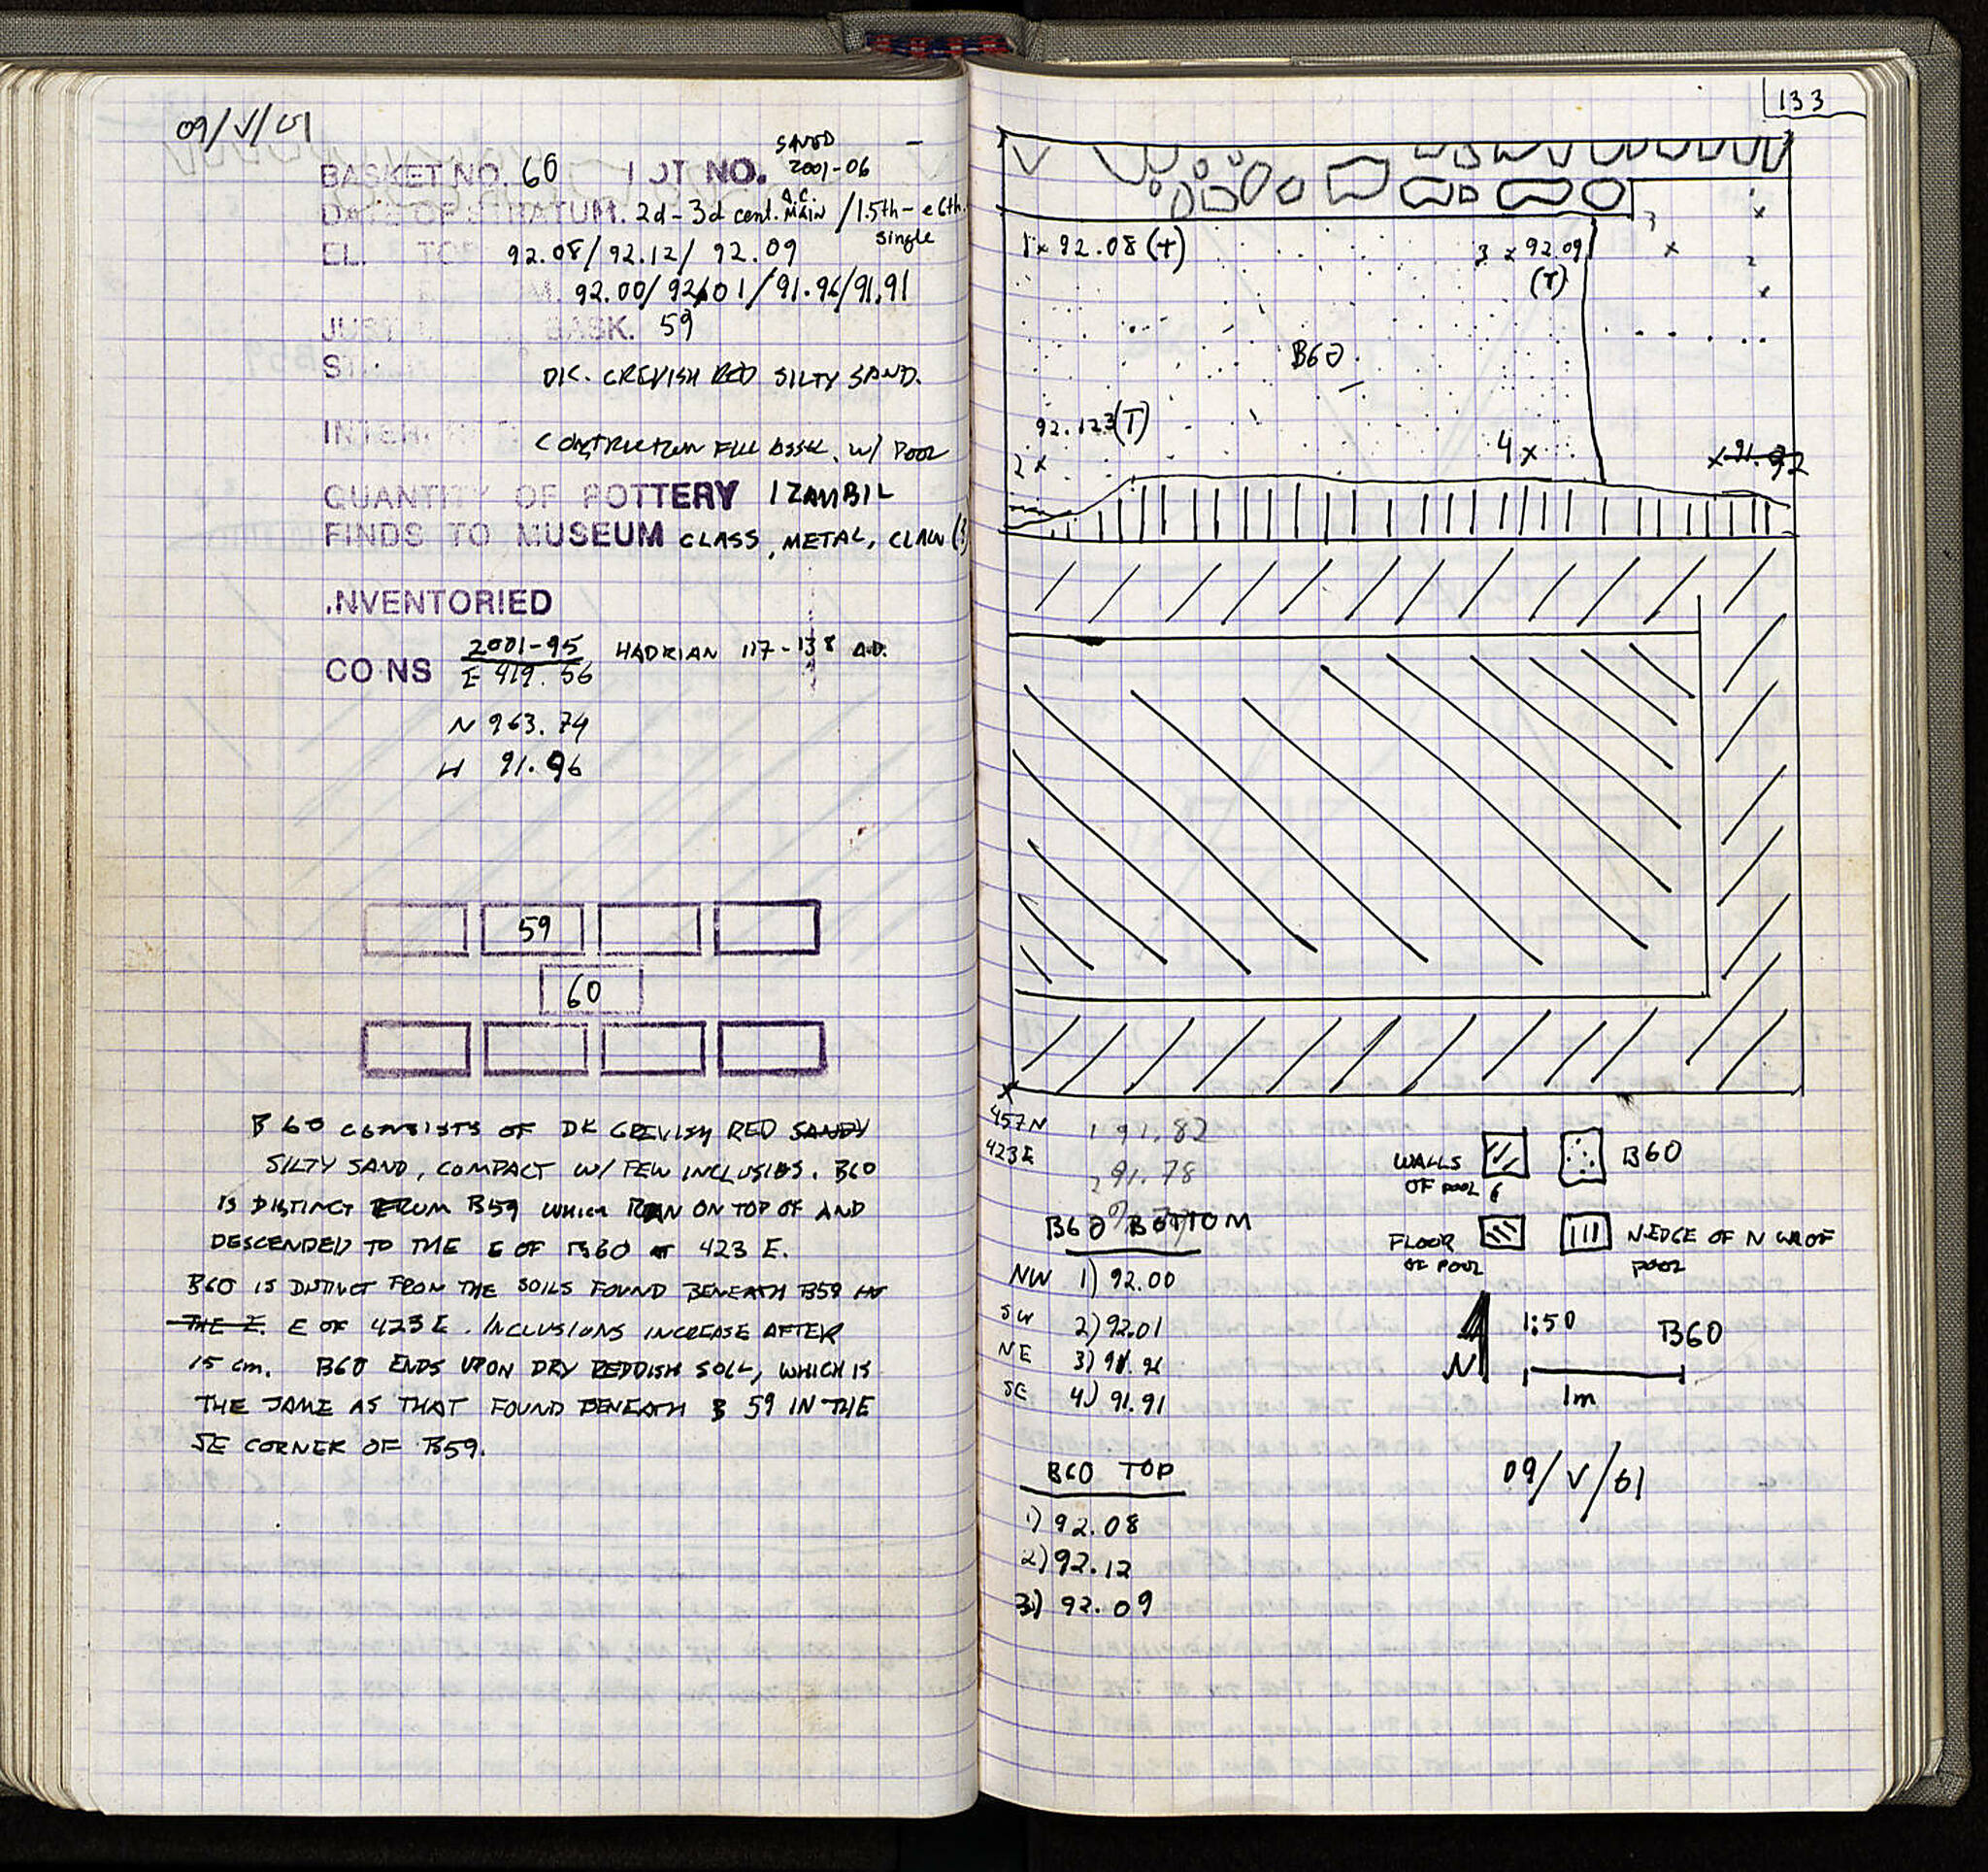 09/V/01
SAVED
BASKET NO. 60 LOT NO. 2001-06
DATE OF STRATUM. 2d-3d cent. A.C. MAIN / l.5th-e6th. single
EL. TOP 92.08/92.12/ 92.09
92.00/92.01/91.96/91.91
JUST BASK. 59
ST DK. GREYISH RED SILTY SAND.
INTER CONSTRUCTION FILL ASSOC. W/ POOL
QUANTITY OF POTTERY 1 ZAMBIL
FINDS TO MUSEUM GLASS, METAL,
INVENTORIED
COINS 2001-95 HADRIAN 117-138 A.D.
E 419.56
N 963.74
H 91.96
59
60
B 60 CONSISTS OF DK GREYISH RED SANDY
SILTY SAND, COMPACT W/ FEW INCLUSIONS. B60
IS DISTINCT FROM B59 WHICH RAN ON TOP OF AND
DESCENDED TO THE E OF B60 AT 423 E.
B60 IS DISTINCT FROM THE SOILS FOUND BENEATH B59 IN
THE E. E OF 423E. INCLUSIONS INCREASE AFTER
15 cm. B60 ENDS UPON DRY REDDISH SOIL, WHICH IS
THE SAME AS THAT FOUND BENEATH B 59 IN THE
SE CORNER OF B59.
133
1x 92.08 (T)
3 x 92.09
(T)
3
x
x
2
x
B60
92.12 (T)
2 x
4 x
x 91.92
x
457N
423E
1 91.82
2 91.78
B60 BOTTOM
NW 1) 92.00
SW 2) 92.01
NE 3) 91.96
SE 4) 91.91
B60 TOP
1) 92.08
2) 92.12
3) 92.09
WALLS
OF POOL
B60
FLOOR
OF POOL
N. EDGE OF N W OF
POOL
N
1:50
B60
1m
09/V/01